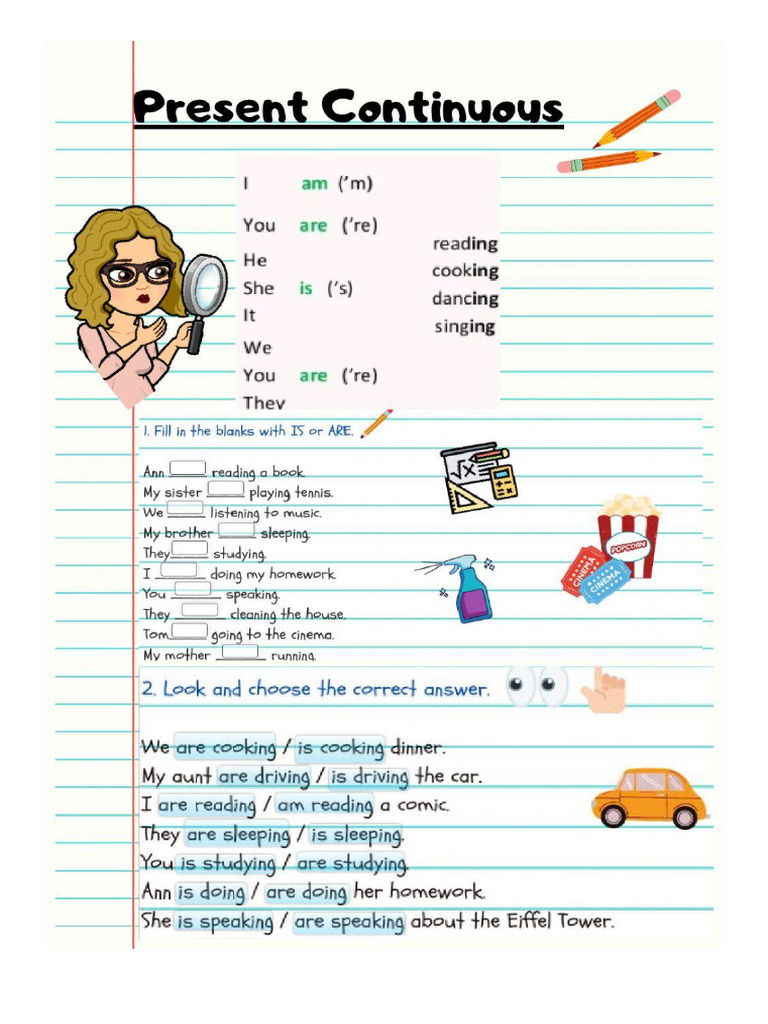 Present Continuous
I am ('m)
You are ('re)
He
She is ('s)
It
We
You are ('re)
They
reading
cooking
dancing
singing
1. Fill in the blanks with IS or ARE.
Ann reading a book.
My sister playing tennis.
We listening to music.
My brother sleeping.
They studying.
I doing my homework.
You speaking.
They cleaning the house.
Tom going to the cinema.
My mother running.
POPCORN
CINEMA
CINEMA
2. Look and choose the correct answer.
We are cooking / is cooking dinner.
My aunt are driving / is driving the car.
I are reading / am reading a comic.
They are sleeping / is sleeping.
You is studying / are studying.
Ann is doing / are doing her homework.
She is speaking / are speaking about the Eiffel Tower.